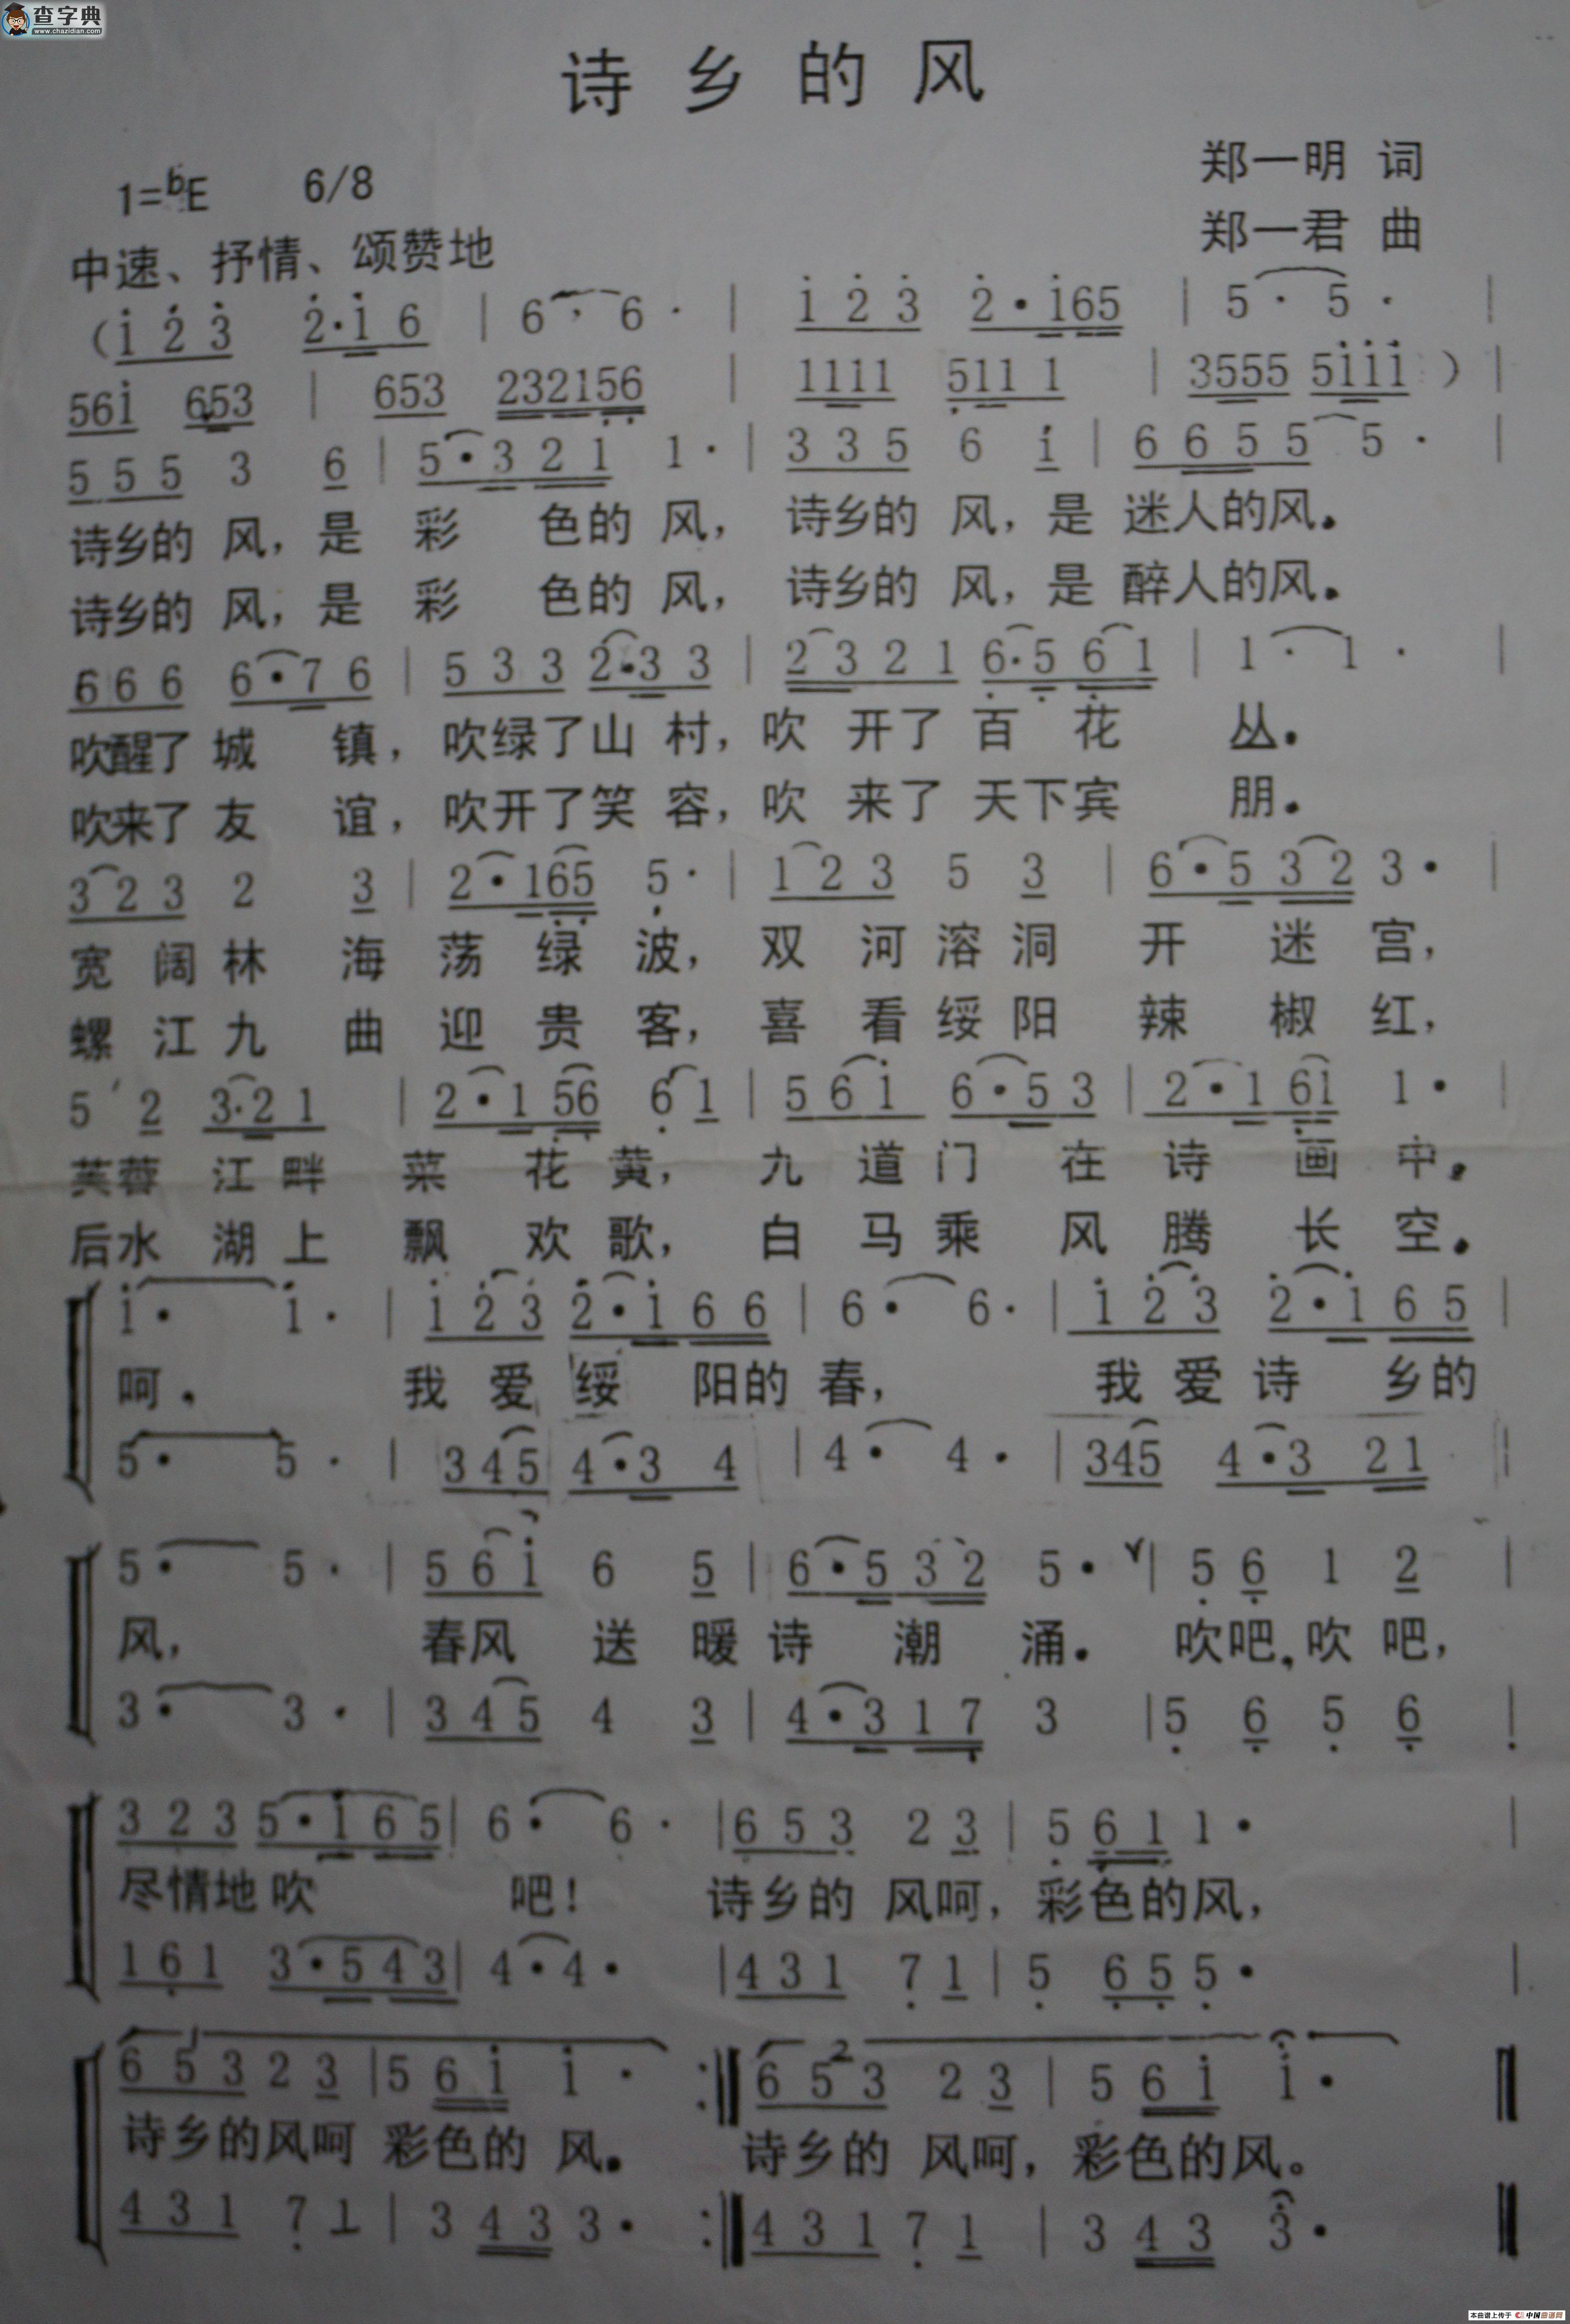 查字典
www.chazidian.com
诗乡的风
1=bE 6/8
郑一明 词
中速、抒情、颂赞地
郑一君 曲
(i 2 3 2·i 6 | 6· 6· | i 2 3 2·i65 | 5· 5· |
56i 653 | 653 232156 | 1111 511 1 | 3555 5iii ) |
5 5 5 3 6 | 5·3 2 1 1· | 3 3 5 6 i | 6 6 5 5 5· |
诗乡的 风, 是 彩 色的 风, 诗乡的 风, 是 迷人的风。
诗乡的 风, 是 彩 色的 风, 诗乡的 风, 是 醉人的风。
6 6 6 6·7 6 | 5 3 3 2·3 3 | 2 3 2 1 6·5 6 1 | 1· 1· |
吹醒了 城 镇, 吹绿了山 村, 吹 开了 百 花 丛。
吹来了 友 谊, 吹开了笑 容, 吹 来了 天下宾 朋。
3 2 3 2 3 | 2·165 5· | 1 2 3 5 3 | 6·5 3 2 3· |
宽 阔 林 海 荡 绿 波, 双 河 溶 洞 开 迷 宫,
螺 江 九 曲 迎 贵 客, 喜 看 绥 阳 辣 椒 红,
5 2 3·2 1 | 2·1 56 6 1 | 5 6 i 6·5 3 | 2·1 61 1· |
芙蓉 江 畔 菜 花 黄, 九 道 门 在 诗 画 中。
后水 湖 上 飘 欢 歌, 白 马 乘 风 腾 长 空。
i· i· | i 2 3 2·i 6 6 | 6· 6· | i 2 3 2·i 6 5 |
呵, 我 爱 绥 阳的 春, 我 爱 诗 乡的
5· 5· | 3 4 5 4·3 4 | 4· 4· | 345 4·3 2 1 |
5· 5· | 5 6 i 6 5 | 6·5 3 2 5· | 5 6 1 2 |
风, 春风 送 暖 诗 潮 涌。 吹吧, 吹 吧,
3· 3· | 3 4 5 4 3 | 4·3 1 7 3 | 5 6 5 6 |
3 2 3 5·i 6 5 | 6· 6· | 6 5 3 2 3 | 5 6 1 1· |
尽情地 吹 吧! 诗乡的 风呵, 彩色的风,
1 6 1 3·5 4 3 | 4·4· | 4 3 1 7 1 | 5 6 5 5· |
6 5 3 2 3 | 5 6 i i· :‖ 6 5 3 2 3 | 5 6 i i· ‖
诗乡的风呵 彩色的 风。 诗乡的 风呵, 彩色的风。
4 3 1 7 1 | 3 4 3 3· :‖ 4 3 1 7 1 | 3 4 3 3· ‖
本曲谱上传于 中国曲谱网